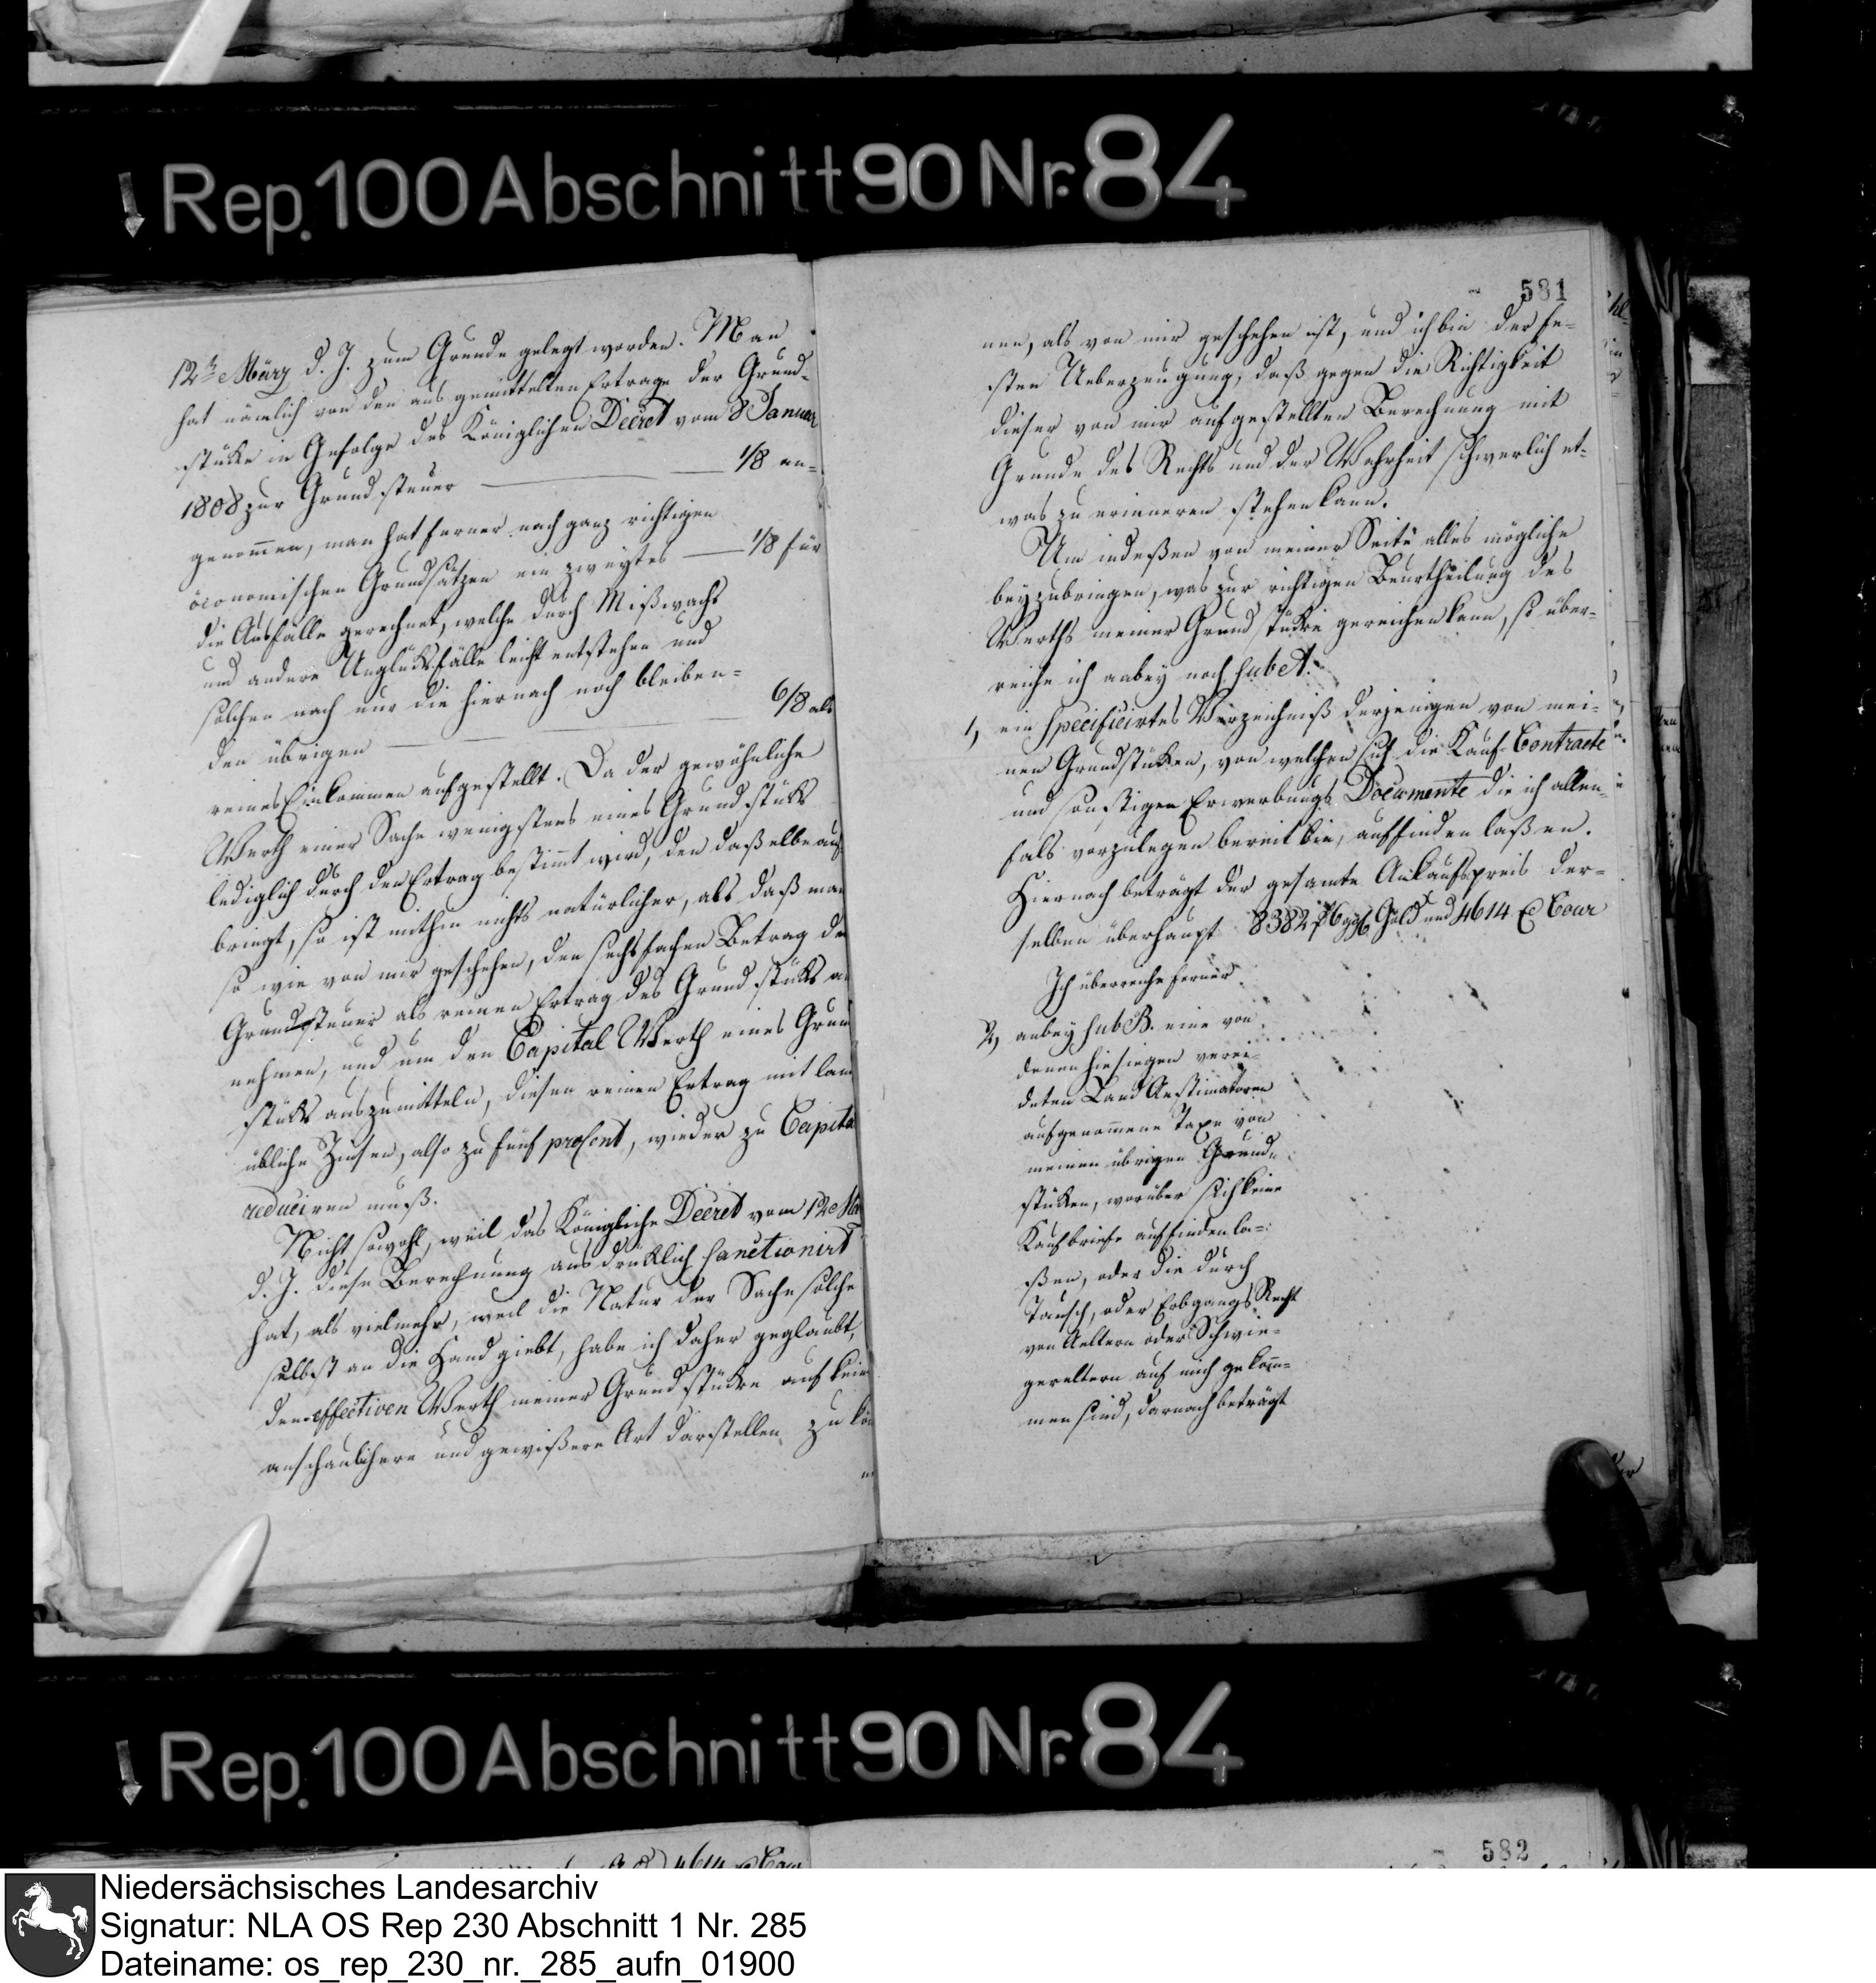 Rep. 100 Abschnitt 90 Nr. 84
12te März d. J. zum Grunde gelegt worden. Man
hat nämlich von den aus gemittelten Ertrage der Grund-
stücke in Gefolge des Königlichen Decret vom 8 Januar
1808 zur Grundsteuer 1/8 an-
genom̄en, man hat ferner nach ganz richtigen
öconomischen Grundsätzen ein zweytes 1/8 für
die Ausfälle gerechnet, welche durch Mißwachs
und andere Unglücksfälle leicht entstehen und
solchen nach nur die hiernach noch bleiben-
den übrigen 6/8 als
reines Einkommen aufgestellt. Da der gewöhnliche
Werth einer Sache wenigstens eines Grundstücks
lediglich durch den Ertrag bestim̄t wird, den daßelbe auf
bringt, so ist mithin nichts natürlicher, als daß man
so wie von mir geschehen, den sechsfachen Betrag der
Grundsteuer als reinen Ertrag des Grundstücks an
nehmen, und um den Capital Werth eines Grund
stücks auszumitteln, diesen reinen Ertrag mit land
übliche Zinsen, also zu fünf procent, wieder zu Capital
reduciren muß.
Nicht sowohl, weil das Königliche Decret vom 12e Mä
d. J. diese Berechnung ausdrücklich sanctionirt
hat, als vielmehr, weil die Natur der Sache solche
selbst an die Hand giebt, habe ich daher geglaubt,
den effectiven Werth meiner Grundstücke auf keine
anschaulichere und gewißere Art darstellen zu kön
581
nen, als von mir geschehen ist, und ich bin der fe-
sten Ueberzeugung, daß gegen die Richtigkeit
dieser von mir aufgestellten Berechnung mit
Grunde des Rechts und der Wahrheit schwerlich et-
was zu erinneren stehen kann.
Um indeßen von meiner Seite alles mögliche
beyzubringen, was zur richtigen Beurtheilung des
Werths meiner Grundstücke gereichen kann, so über-
reiche ich anbey noch sub A.
1, ein specificirtes Verzeichniß derjenigen von mei-
nen Grundstücken, von welchen sich die Kauf-Contracte
und sonstigen Erwerbungs Documente die ich allen-
fals vorzulegen bereit bin, auffinden laßen.
Hiernach beträgt der gesamte Ankaufspreis der-
selben überhaupt 8382 Gold und 4614 Cour
Ich überreiche ferner
2, anbey sub B. eine von
denen hiesigen verei-
deten Land Aestimatoren
aufgenom̄ene Taxe von
meinen übrigen Grund-
stücken, worüber sich keine
Kaufbriefe auffinden la-
ßen, oder die durch
Tausch, oder Erbgangs Recht
von Aeltern oder Schwie-
gereltern auf mich gekom̄-
men sind, darnach beträgt
Rep. 100 Abschnitt 90 Nr. 84
582
Niedersächsisches Landesarchiv
Signatur: NLA OS Rep 230 Abschnitt 1 Nr. 285
Dateiname: os_rep_230_nr._285_aufn_01900